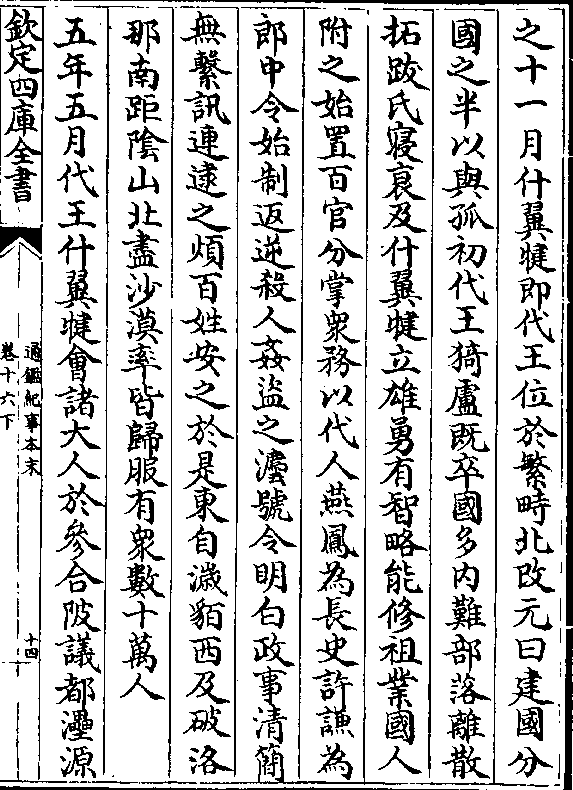 之十一月什翼犍即代王位於繁畤北改元曰建國分
國之半以與孤初代王猗盧既卒國多内難部落離散
拓跋氏寖衰及什翼犍立雄勇有智略能修祖業國人
附之始置百官分掌衆務以代人燕鳳為長史許謙為
郎中令始制返逆殺人姦盗之灋號令明白政事清簡
無繫訊連逮之煩百姓安之於是東自濊貊西及破洛
那南距陰山北盡沙漠率皆歸服有衆數十萬人
五年五月代王什翼犍會諸大人於參合陂議都灅源
欽定四庫全書
通鑑紀事本末
卷十六下
十四